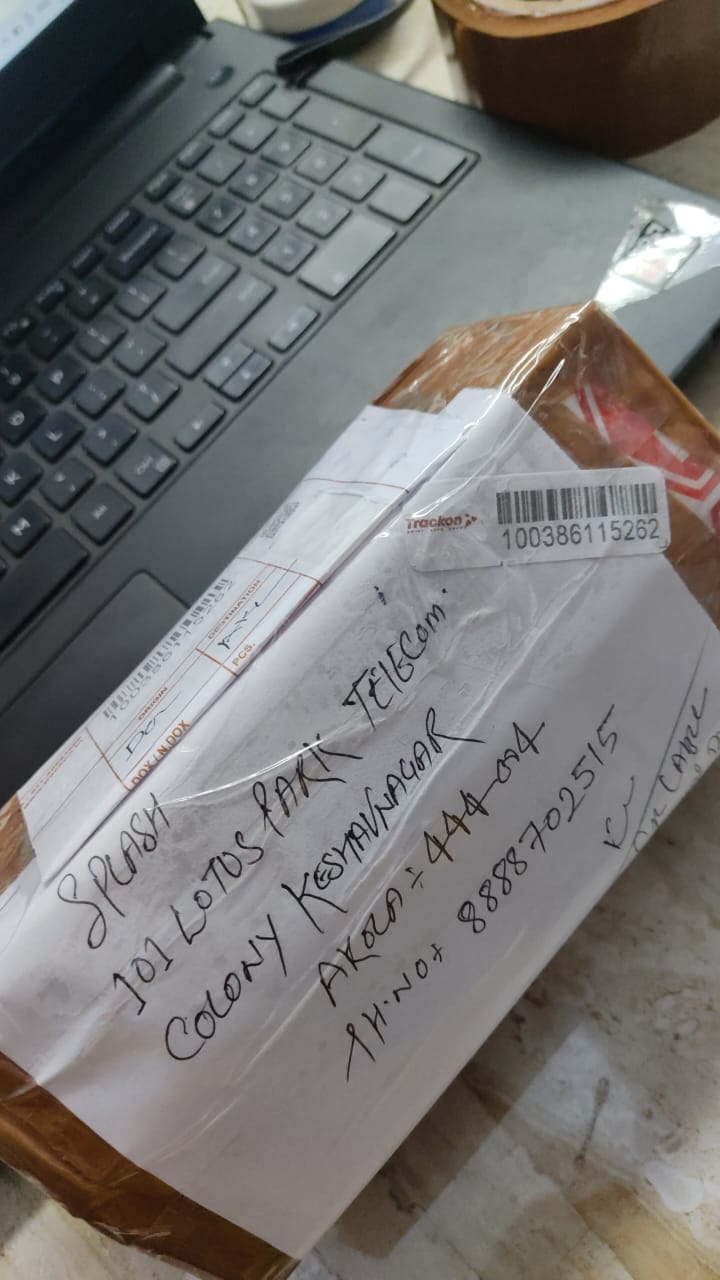 Trackon
100386115262
DESTINATION
PCS.
ORIGIN
DOX / N DOX
SPLASH
101 LOTUS PARK TELECOM.
COLONY KESHAVNAGAR
AKOLA ÷ 444-004
PH.NO÷ 8888702515